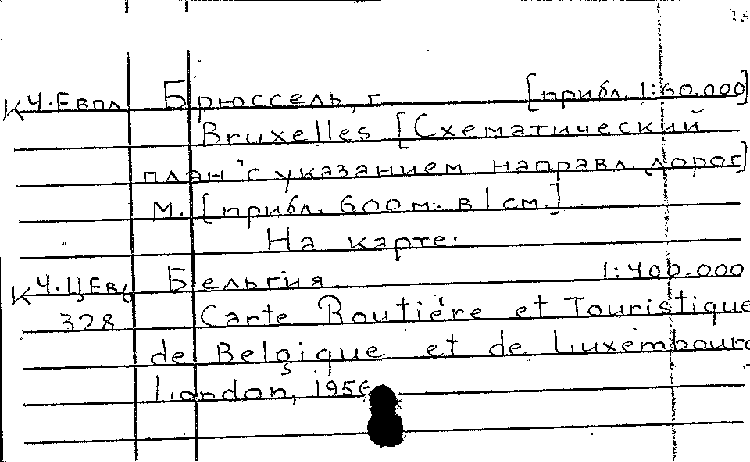 К Ч.Евпл Брюссель, г. [прибл. 1:60.000]
Bruxelles [Схематический
план с указанием направл. дорог]
М. [прибл. 600 м. в 1 см.]
На карте:
К Ч.ЦЕв Бельгия 1:400.000
328 Carte Routière et Touristique
de Belgique et de Luxembourg
London, 1956